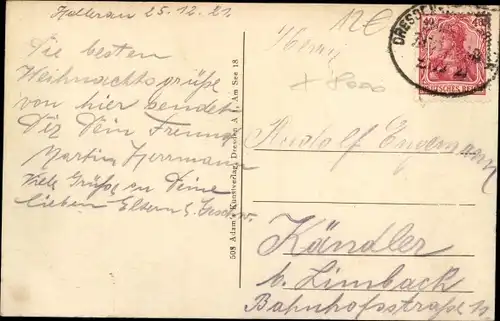 Hellerau 25.12.21.
Die besten
Weihnachtsgrüße
von hier sendet
Dir Dein Freund
Martin Herrmann
Viele Grüße an Deine
lieben Eltern
508 Adam's Kunstverlag, Dresden A. 1, Am See 18
12€
+ 8000
DRESDEN
40 40
DEUTSCHES REICH
Herrn
Rudolf Engemann
Kändler
b. Limbach
Bahnhofsstraße